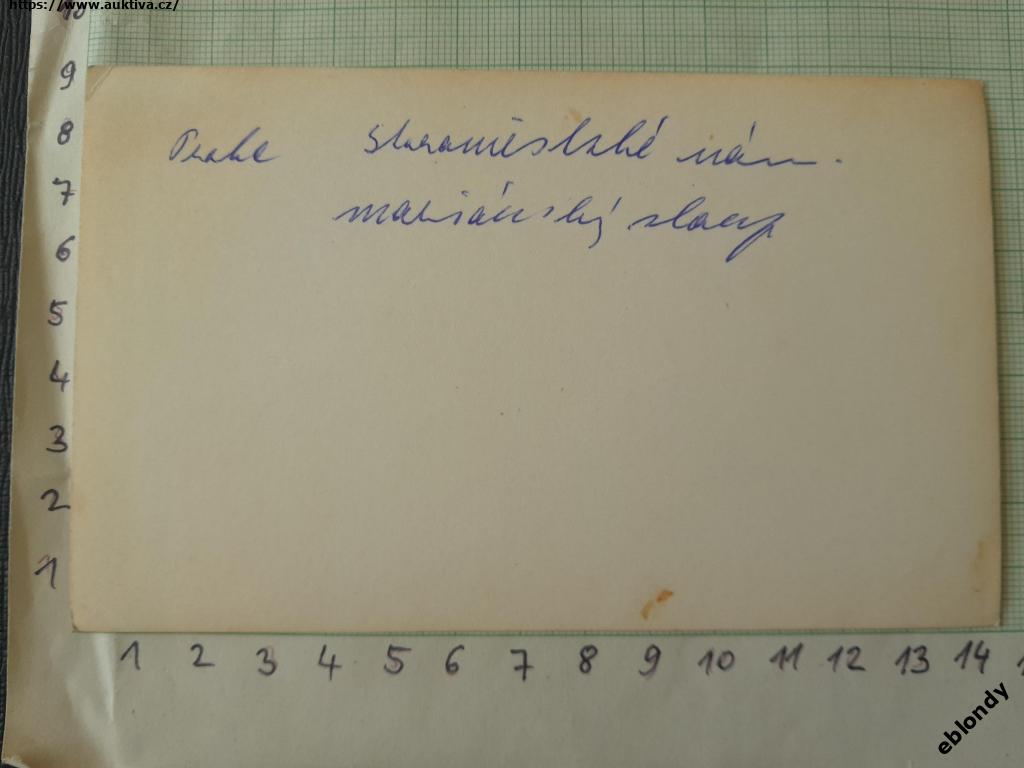 https://www.auktiva.cz/
10
9
8
7
6
5
4
3
2
1
Praha Staroměstské nám.
mariánský sloup
1 2 3 4 5 6 7 8 9 10 11 12 13 14
eblondy